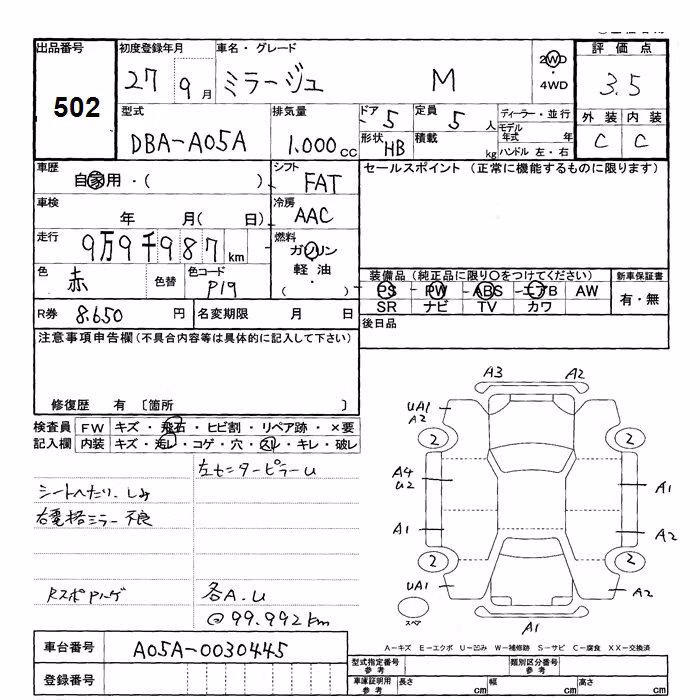 出品番号 初度登録年月 車名・グレード 評価点
502 27 9月 ミラージュ M 2WD ・ 4WD 3.5
型式 排気量 ドア 5 定員 5人 ディーラー・並行 外装 内装
DBA-A05A 1.000cc 形状 HB 積載 kg モデル年式 年 C C
ハンドル 左・右
車歴 自家用・( ) シフト FAT セールスポイント (正常に機能するものに限ります)
車検 年 月( 日) 冷房 AAC
走行 9万9千987km 燃料 ガソリン
軽油
( )
色 赤 色替 色コード P19 装備品 (純正品に限り○をつけてください) 新車保証書
PS PW ABS エアB AW 有・無
R券 8.650円 名変期限 月 日 SR ナビ TV カワ
注意事項申告欄 (不具合内容等は具体的に記入して下さい) 後日品
修復歴 有 〔箇所 〕
検査員 FW キズ・飛石・ヒビ割・リペア跡・×要
記入欄 内装 キズ・汚レ・コゲ・穴・スレ・キレ・破レ
左センターピラーU
シートへたり、しみ
右電格ミラー不良
RスポPハゲ 各A.U
@99.992km
A3 A2
UA1
A2
2 2
A4
U2 A1
A1 A2
2 2
UA1 A2
スペア A1
A-キズ E-エクボ U-凹み W-補修跡 S-サビ C-腐食 XX-交換済
車台番号 A05A-0030445
型式指定番号 参考 類別区分番号 参考
登録番号 車庫証明用 参考 長さ cm 幅 cm 高さ cm